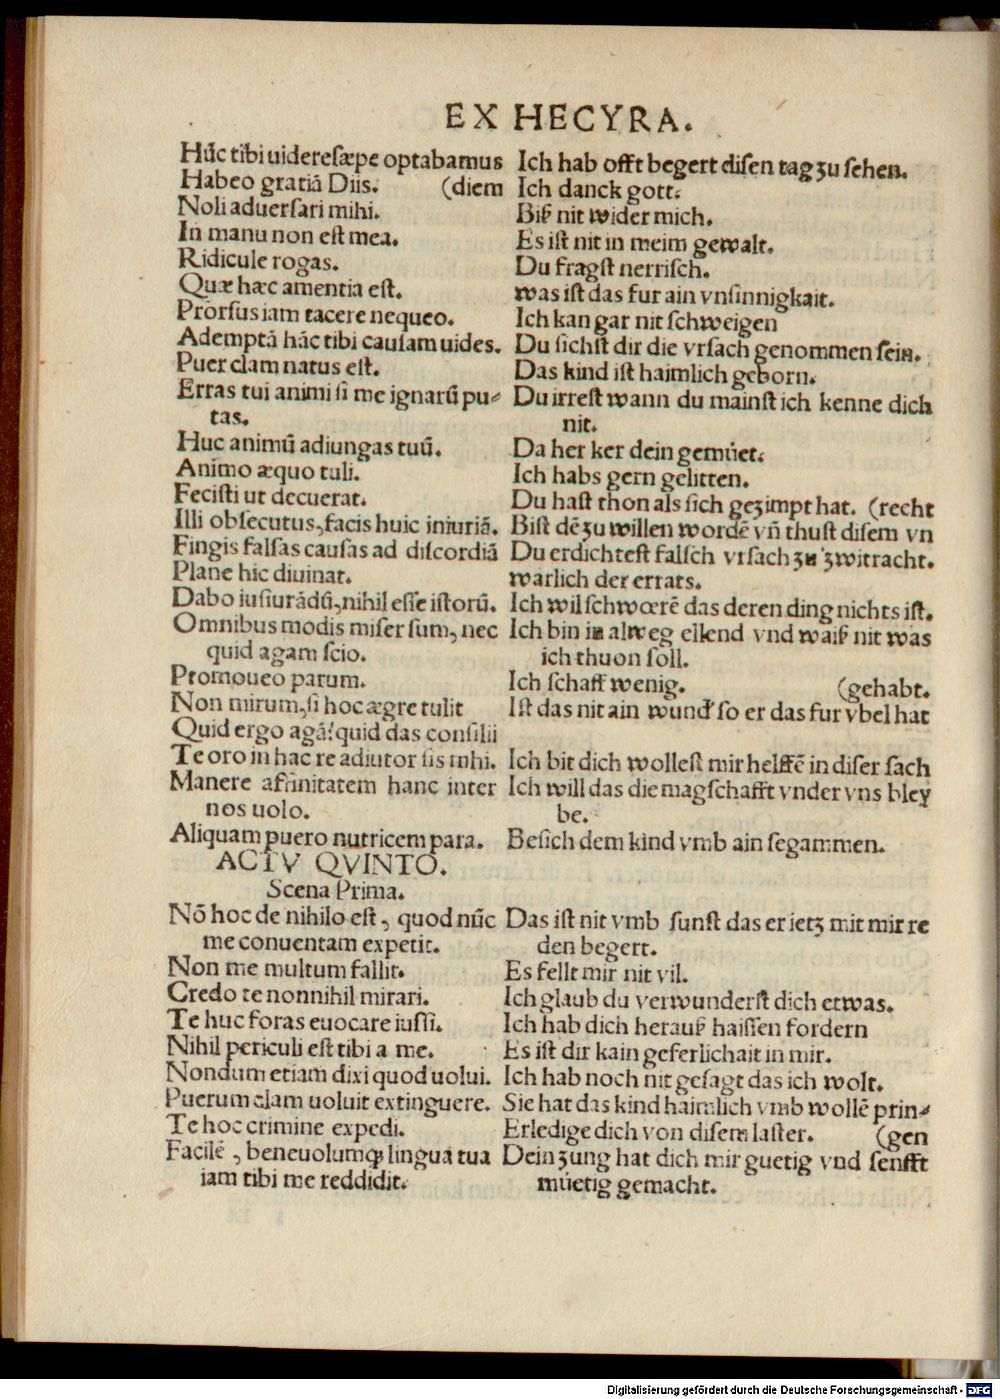 EX HECYRA.
Hūc tibi uidere sæpe optabamus Ich hab offt begert disen tag zu sehen.
Habeo gratiā Diis. (diem Ich danck gott.
Noli aduersari mihi. Biß nit wider mich.
In manu non est mea. Es ist nit in meim gewalt.
Ridicule rogas. Du fragst nerrisch.
Quæ hæc amentia est. was ist das fur ain vnsinnigkait.
Prorsus iam tacere nequeo. Ich kan gar nit schweigen
Ademptā hāc tibi causam uides. Du sichst dir die vrsach genommen sein.
Puer clam natus est. Das kind ist haimlich geborn.
Erras tui animi si me ignarū pu⸗ Du irrest wann du mainst ich kenne dich
tas. nit.
Huc animū adiungas tuū. Da her ker dein gemüet.
Animo æquo tuli. Ich habs gern gelitten.
Fecisti ut decuerat. Du hast thon als sich gezimpt hat. (recht
Illi obsecutus, facis huic iniuriā. Bist dē zu willen wordē vñ thust disem vn
Fingis falsas causas ad discordiā Du erdichtest falsch vrsach zu zwitracht.
Plane hic diuinat. warlich der errats.
Dabo iusiurādū, nihil esse istorū. Ich wil schwœrē das deren ding nichts ist.
Omnibus modis miser sum, nec Ich bin in alweg ellend vnd waiß nit was
quid agam scio. ich thuon soll.
Promoueo parum. Ich schaff wenig. (gehabt.
Non mirum, si hoc ægre tulit Ist das nit ain wund' so er das fur vbel hat
Quid ergo agā? quid das consilii
Te oro in hac re adiutor sis mhi. Ich bit dich wollest mir helffē in diser sach
Manere affinitatem hanc inter Ich will das die magschafft vnder vns bley
nos uolo. be.
Aliquam puero nutricem para. Besich dem kind vmb ain segammen.
ACTV QVINTO.
Scena Prima.
Nō hoc de nihilo est, quod nūc Das ist nit vmb sunst das er ietz mit mir re
me conuentam expetit. den begert.
Non me multum fallit. Es fellt mir nit vil.
Credo te nonnihil mirari. Ich glaub du verwunderst dich etwas.
Te huc foras euocare iussi. Ich hab dich herauß haissen fordern
Nihil periculi est tibi a me. Es ist dir kain geferlichait in mir.
Nondum etiam dixi quod uolui. Ich hab noch nit gesagt das ich wolt.
Puerum clam uoluit extinguere. Sie hat das kind haimlich vmb wollē prin⸗
Te hoc crimine expedi. Erledige dich von disem laster. (gen
Facilē, beneuolumq; lingua tua Dein zung hat dich mir guetig vnd senfft
iam tibi me reddidit. müetig gemacht.
Digitalisierung gefördert durch die Deutsche Forschungsgemeinschaft - DFG